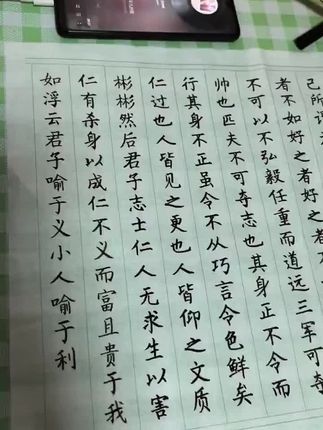 己所
者不如好之者好之
不可以不弘毅任重而道远三军可夺
帅也匹夫不可夺志也其身正不令而
行其身不正虽令不从巧言令色鲜矣
仁过也人皆见之更也人皆仰之文质
彬彬然后君子志士仁人无求生以害
仁有杀身以成仁不义而富且贵于我
如浮云君子喻于义小人喻于利